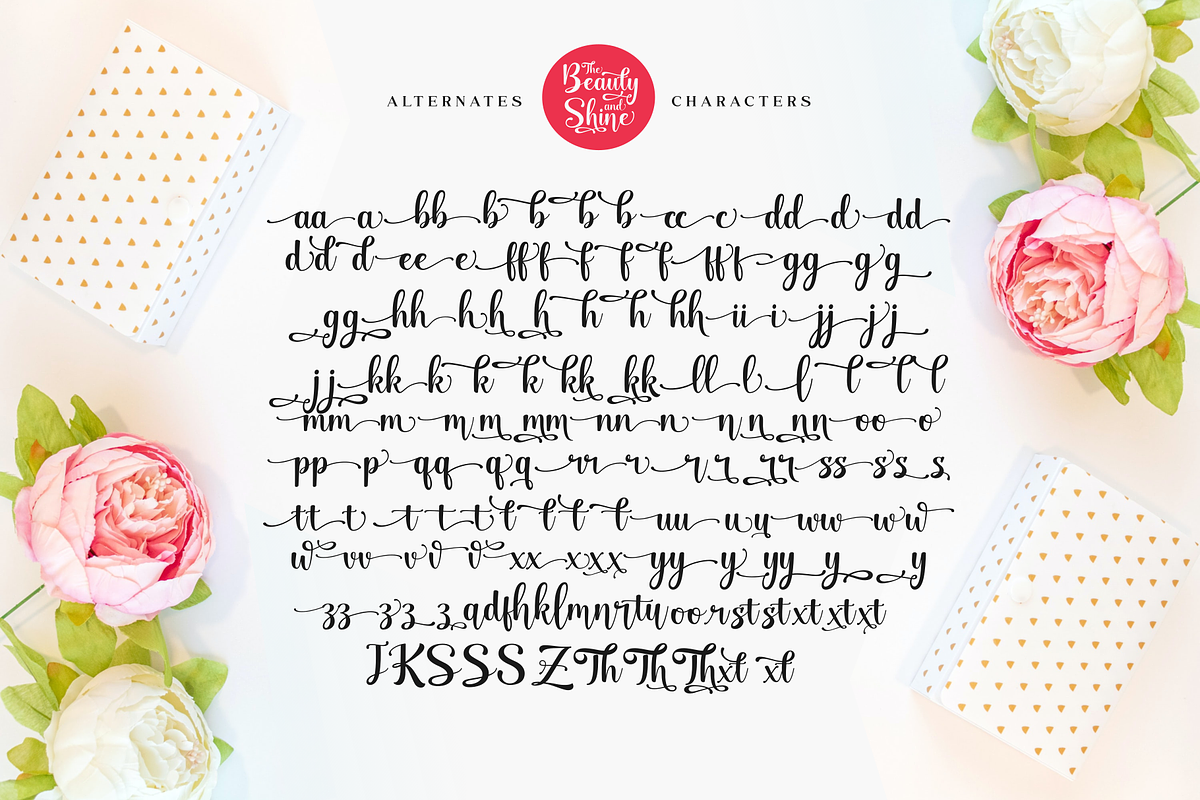 ALTERNATES
The
Beauty
and
Shine
CHARACTERS
aa a bb b b b b cc c dd d dd
d d d ee e ff f f f f ff f gg g g
gg hh h h h h h hh ii i jj j j
j j kk k k k kk kk ll l l l l l
mm m m m mm nn n n n nn oo o
pp p qq q q rr r r r rr ss s s s
tt t t t t t t t t uu u y ww w w
w vv v v v xx x x x yy y yy y y
zz z z z a d f h k l m n r t u o o r st st xt xt xt
J K S S S Z Th Th Th xt xt